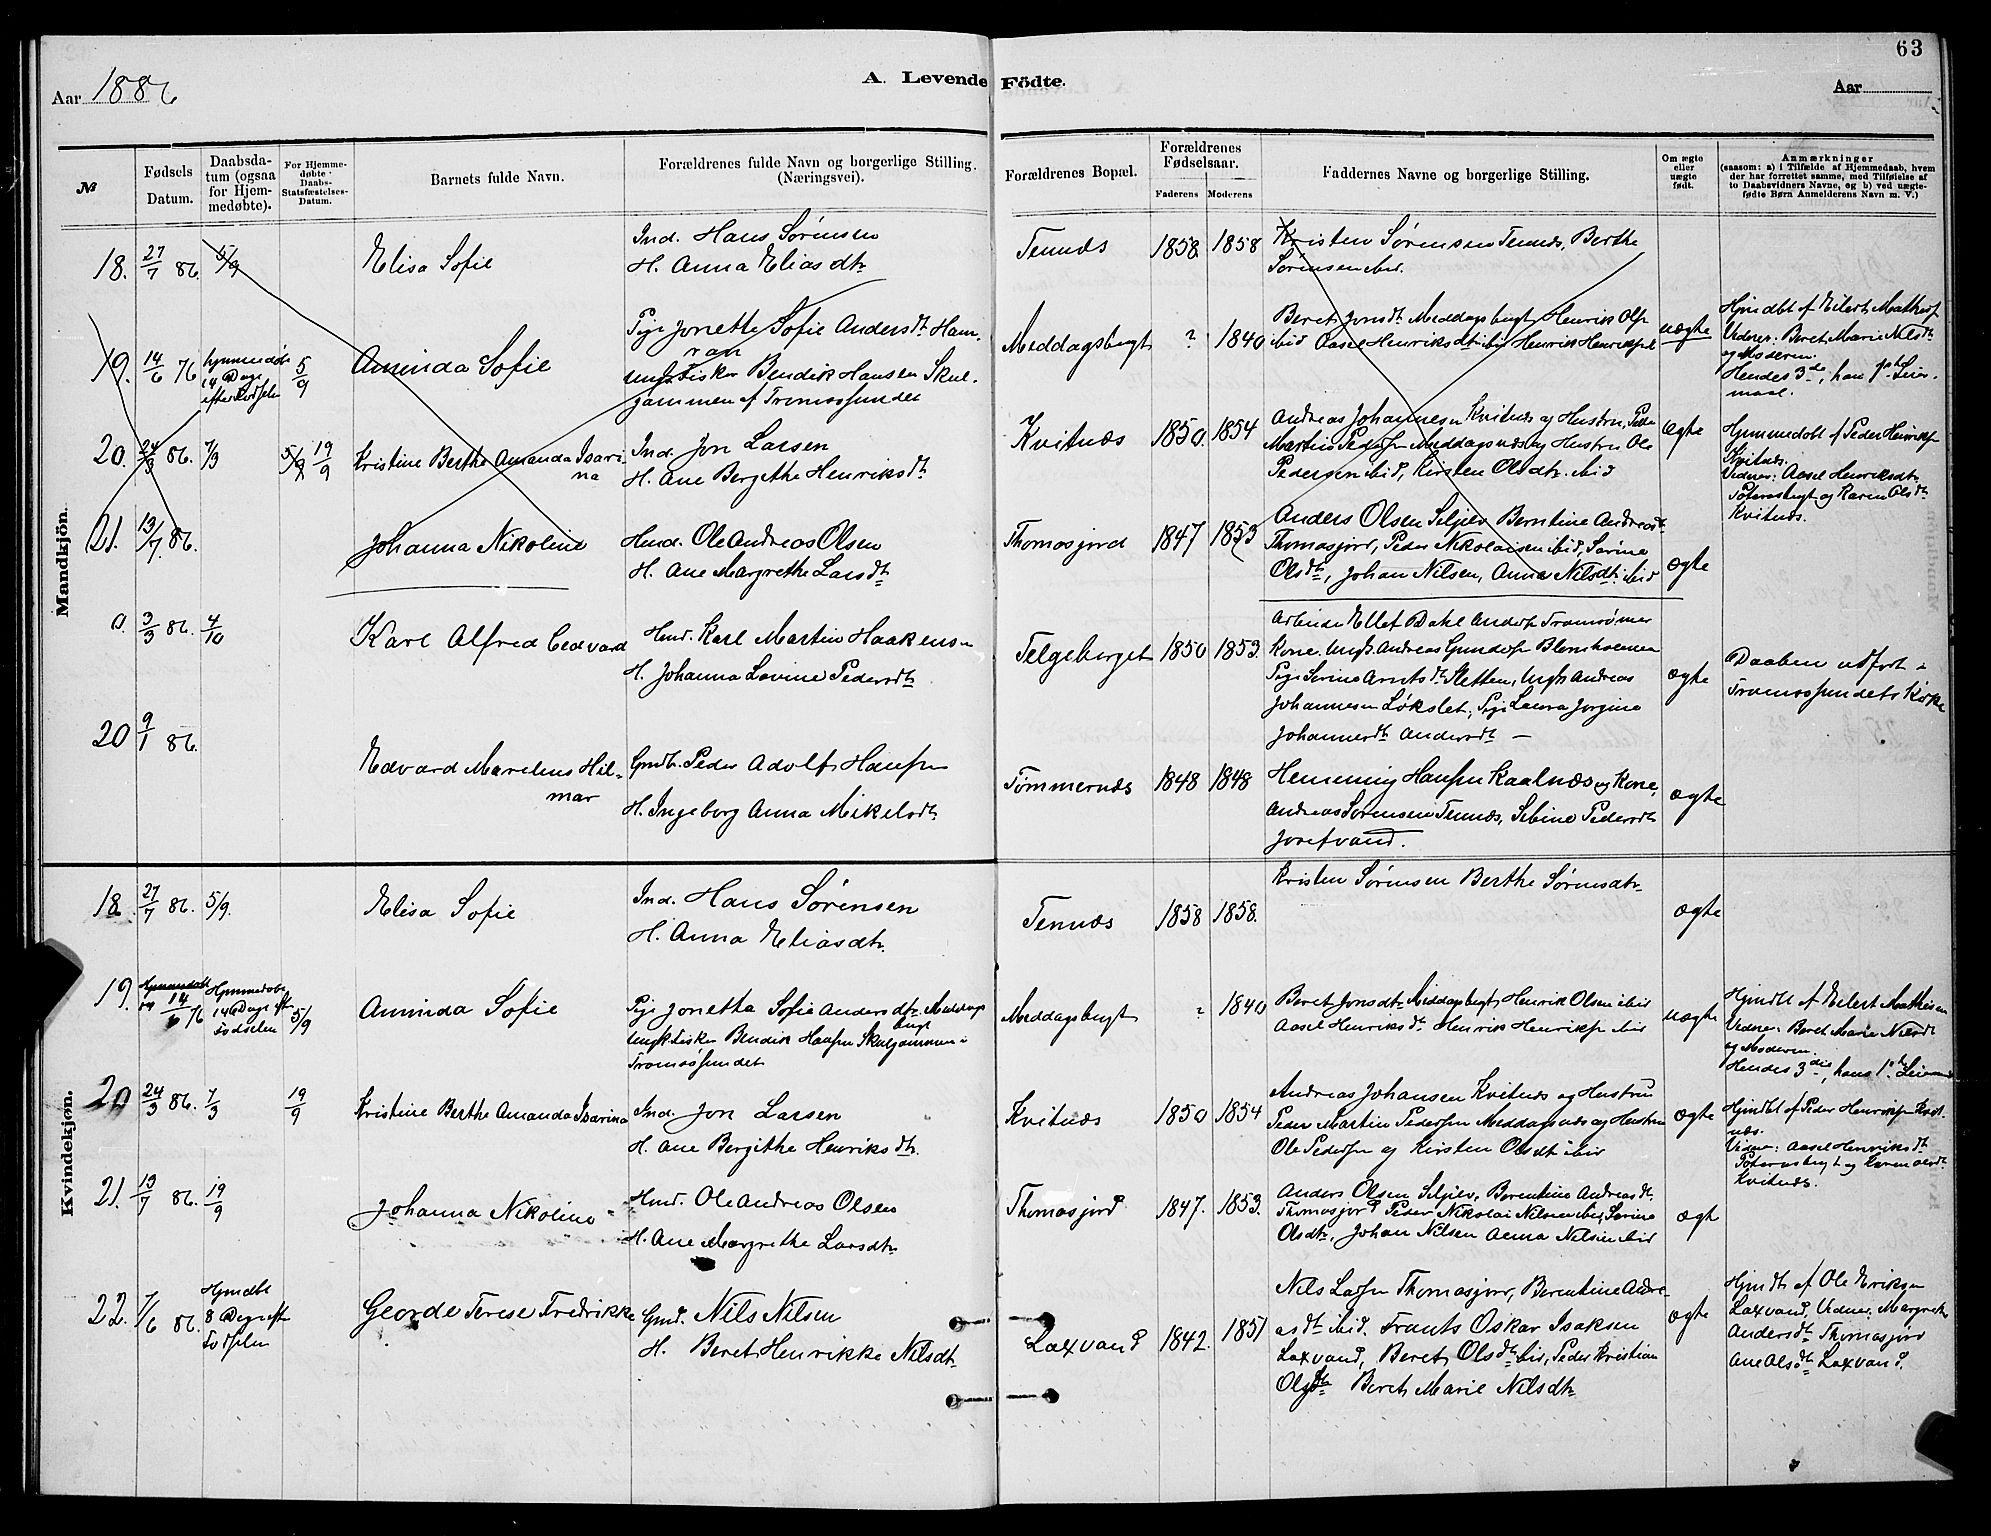 63
Aar 1886
A. Levende Födte.
Aar
№
Fødsels Datum.
Daabsdatum (ogsaa for Hjemmedøbte).
For Hjemmedøbte Daabs-Statsfæstelses-Datum.
Barnets fulde Navn.
Forældrenes fulde Navn og borgerlige Stilling. (Næringsvei).
Forældrenes Bopæl.
Forældrenes Fødselsaar.
Faderens
Moderens
Faddernes Navne og borgerlige Stilling.
Om ægte eller uægte født.
Anmærkninger
(saasom: a) i Tilfælde af Hjemmedaab, hvem
der har forrettet samme, med Tilføielse af
to Daabsvidners Navne, og b) ved uægte-
fødte Børn Anmelderens Navn m. V.)
Mandkjön.
18. 27/7 86. 5/9 Elisa Sofie
Ind. Hans Sørensen
H. Anna Eliasdtr
Tennæs 1858 1858
Kristen Sørensen Tennæs, Berthe
Sørensen ibid.
19. 14/6 76 hjemmedøbt
14 Dage
efter Fødselen
5/9
Aminda Sofie
Pige Jonetha Sofie Andersdt
Ungk. Fisker Bendik Hansen Skul-
gammen af Tromsøsundet
Meddagsbugt ? 1840
Beret Jonsdt Meddagsbugt, Henrik Ols
ibid Aasel Henriksdtr ibid Henrik Henriksen
uægte
Hjmdbt af Eilert Mathis
Vidner: Beret Marie Nilsdt
og Moderen.
Hendes 3de, hans 1ste Leier-
maal.
20. 24/3 86. 7/3 5/9 19/9
Kristine Berthe Amanda Isari-
na
Ind. Jon Larsen
H. Ane Bergithe Henriksdt
Kvitnæs 1850 1854
Andreas Johannesen Kvitnæs og Hustru, Peder
Martin Peders Meddagsnæs og Hustru Ole
Pedersen ibid, Kirsten Olsdtr ibid
ægte
Hjemmedøbt af Peder Henriks
Kvitnæs.
Vidner: Aasel Henriksdtr
og Karen Olsdt
Kvitnæs.
21. 13/7 86.
Johanna Nikoline
Hmd. Ole Andreas Olsen
H. Ane Margrethe Larsdt
Thomasjord 1847 1853
Anders Olsen Seljev Berntine Andreasdt
Thomasjord, Peder Nikolaisen ibid, Sørine
Olsdt, Johan Nilsen, Anna Nilsdt ibid
ægte
0. 3/3 86. 4/10
Karl Alfred Cedvard
Hmd. Karl Martin Haakensen
H. Johanna Lovine Pedersdt
Telgeberget 1850 1853.
Arbeider Ellet Dahl Anders Tromsø med
Kone. Ungk. Andreas Gunders Blomholmen
Pige Serine Arntsdt Sletten, Ungk Andreas
Johannesen Løkslet, Pige Laura Jorgine
Johannesdt Andersdt —
ægte
Daaben udført i
Tromsøsundets Kirke
20 9/1 86.
Edvard Marelius Hil-
mar
Gmdb. Peder Adolf Hansen
H. Ingeborg Anna Mikelsdt
Tømmernæs 1848 1848
Hemming Hansen Kaalnæs og Kone,
Andreas Sørensen Tennæs, Sebine Pedersdt
Josefvand.
ægte
Kvindekjön.
18. 27/7 86. 5/9.
Elisa Sofie
Ind. Hans Sørensen
H. Anna Eliasdtr.
Tennæs 1858 1858.
Kristen Sørensen Berthe Sørensdtr
ægte
19. 14/6 76
Hjemmedøbt
14 Dage eft
Fødselen
5/9
Aminda Sofie
Pige Jonetha Sofie Andersdtr Meddags
bugt
Ungk Fisker Bendik Hansen Skulgammen i
Tromsøsundet
Meddagsbugt ? 1840
Beret Jonsdtr Meddagsbugt, Henrik Olsen ibid
Aasel Henriksdt Henrik Henriks ibid
uægte
Hjmdbt af Eilert Mathisen
Vidner: Beret Marie Nilsdt
og Moderen.
Hendes 3die, hans 1ste Leiermaal
20 24/3 86. 7/3 19/9
Kristine Berthe Amanda Isarina
Ind. Jon Larsen
H. Ane Bergithe Henriksdtr.
Kvitnæs 1850 1854
Andreas Johansen Kvitnæs og Hustru
Peder Martin Pedersen Meddagsnæs og Hustru
Ole Pedersen og Kirsten Olsdt ibid
ægte
Hjmdbt af Peder Henriksen Kvit-
næs.
Vidner: Aasel Henriksdt
og Karen Olsdt
Kvitnæs.
21. 13/7 86. 19/9
Johanna Nikoline
Hmd. Ole Andreas Olsen
H. Ane Margrethe Larsdtr
Thomasjord 1847. 1853.
Anders Olsen Seljev, Berentine Andreasdt.
Thomasjord Peder Nikolai Nilsen ibid, Sørine
Olsdtr, Johan Nilsen Anna Nilsen ibid
ægt
22. 7/6 86.
Hjmdbt
8 Dage eft
Fødselen
Georde Terese Fredrikke
Gmd. Nils Nilsen
H. Beret Henrikke Nilsdt
Laxvand 1842. 1851
Nils Larsen Thomasjord, Berentine Andre-
asdt ibid. Frants Oskar Isaksen
Laxvand, Beret Olsdt ibid, Peder Kristian
Olsdt Beret Marie Nilsdtr
ægte
Hjmdt af Ole Eriksen
Laxvand, Vidner: Margrethe
Andersdt Thomasjord
Ane Olsdt Laxvand.